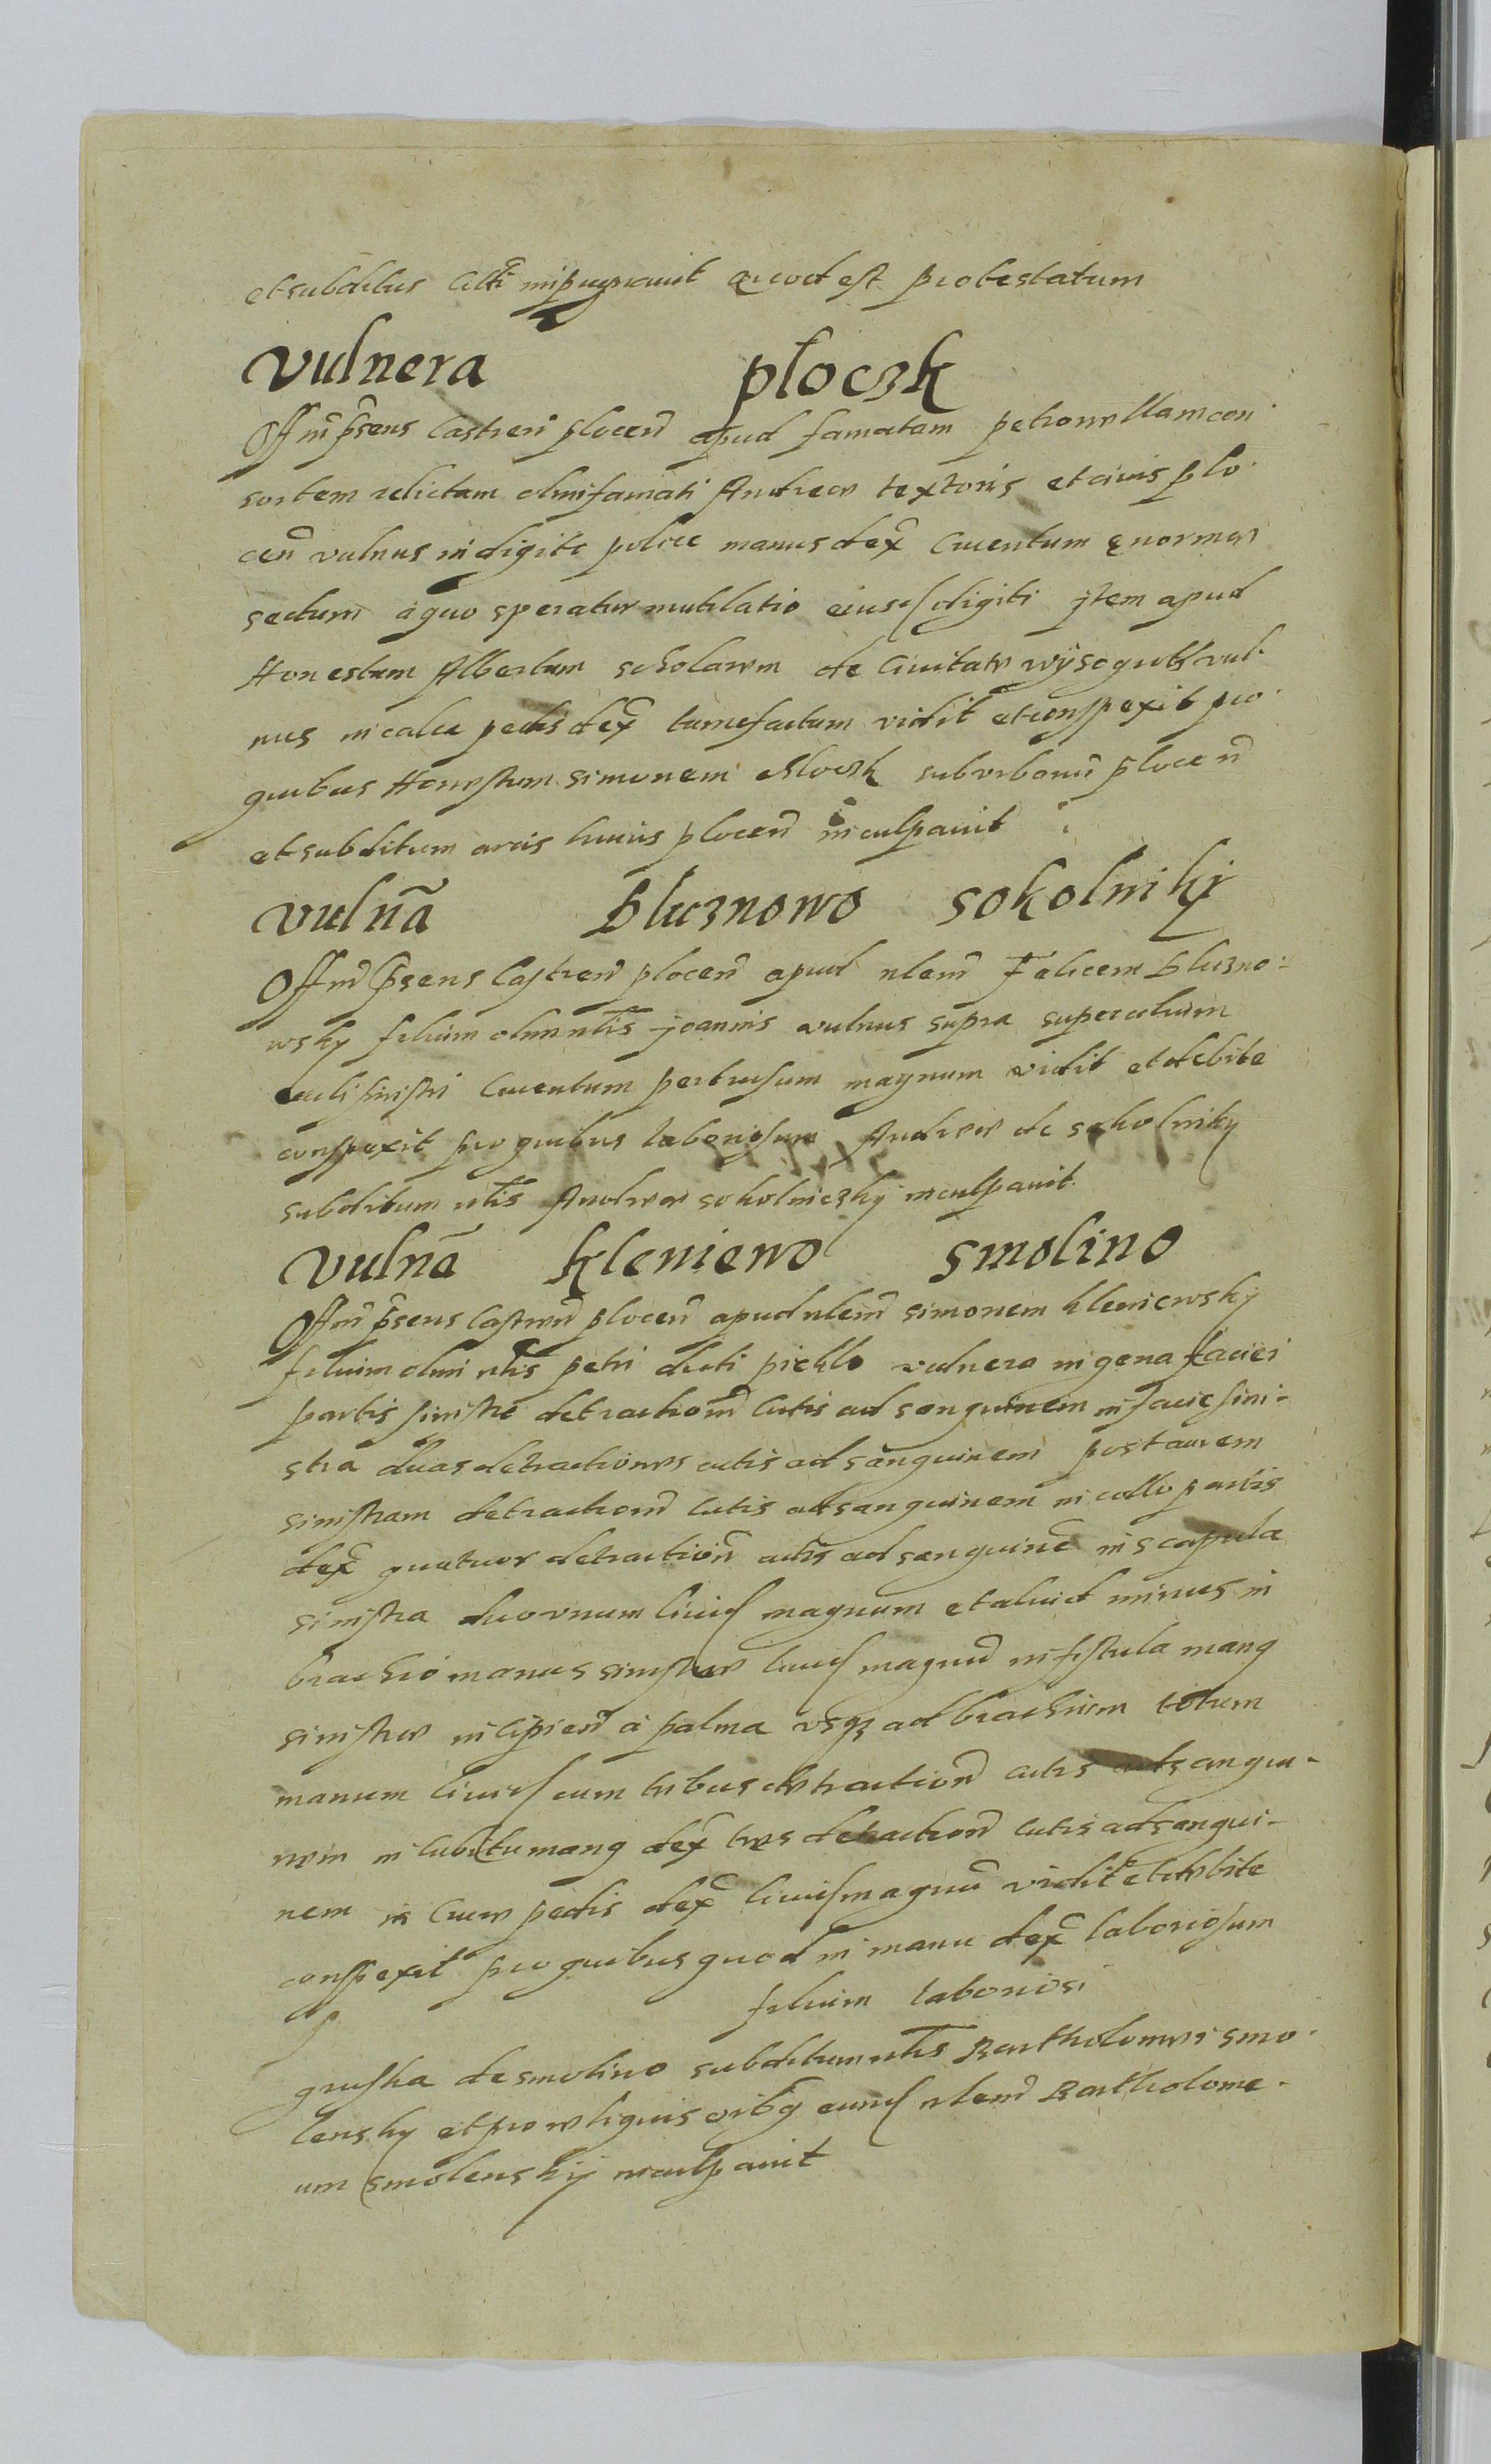 et subditus impugnavit quod est protestatum
Vulnera płoczk
Offm̃ p̃sens Castren̄ płocen̄ apud famatam petronellam con
sortem relictam olim famati Andreae textoris et civis plo
cen̄ vulnus in digito police manus dex̃ cruentum enorme
sectum a quo speratur mutilatio eiusd digiti Jtem apud
Honestum Albertum scholarem de Civitate wÿsogrod vul
nus in calce pedis dex̃ tumefactum vidit et conspexit pro
quibus Honestum Simonem suburbanū płocen̄
et subditum arcis huius płocen̄ inculpavit
Vulnã Bluznowo Sokolnikj
Offm̃ p̃sens Castren̄ plocen̄ apud nlem̃ Felicem Bluzno
wsky filium olim nlis Joannis vulnus supra supercilium
oculi sinistri Cruentum pertusum magnum vidit et debite
conspexit pro quibus laboriosum Andream de sokolniky
subditum nlis Andreae sokolniczky inculpavit
Vulnã kleniewo Smolino
Offm̃ p̃sens Castren̄ plocen̄ apud nlem̃ simonem kleniewsky
filium olim nlis petri dicti piekllo vulnera in gena faciei
partis sinistre detractionē Cutis ad sanguinem in facie sini-
stra duas detractiones cutis ad sanguinem post aurem
sinistram detractionē cutis ad sanguinem in collo partis
dex̃ quatuor detraction̄ cutis ad sanguinē in scapula
sinistra duo unum livid magnum et aliud minus in
brachio manus sinistrae livid magnū in fistula man9
sinistrae incipien̄ a palma usq3 ad brachium totum
manum livid cum tribus detraction̄ cutis ad sangui-
nem in cubitu man9 dex̃ tres detraction̄ cutis ad sangui-
nem in Crure pedis dex̃ livid magnū vidit et debite
conspexit pro quibus quod in manu dex̃ laboriosum
filium laboriosi
gruska de smolino subditum nlis Bartholomei smo
lensky et pro reliquis oib9 eund nlem̃ Bartholome-
um smolenskÿ inculpavit